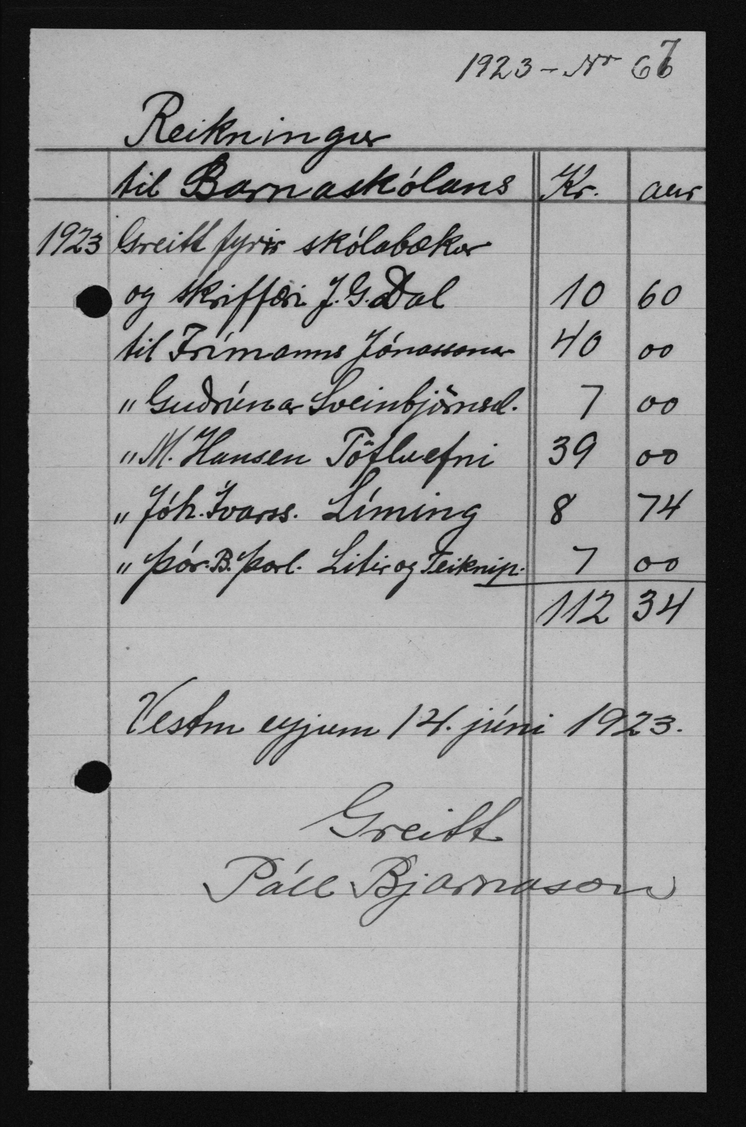 1923 - Nr 67
Reikningur
til Barnaskólans Kr. aur
1923 Greitt fyrir skólabækur
og skriffæri J. G. Dal 10 60
til Frímanns Jónassonar 40 00
„ Guðrúnar Sveinbjörnsd. 7 00
„ M. Hansen Töfluefni 39 00
„ Jóh. Ivarss. Líming 8 74
„ Þór. B. Þorl. Litir og Teiknip. 7 00
112 34
Vestm eyjum 14. júní 1923.
Greitt
Páll Bjarnason